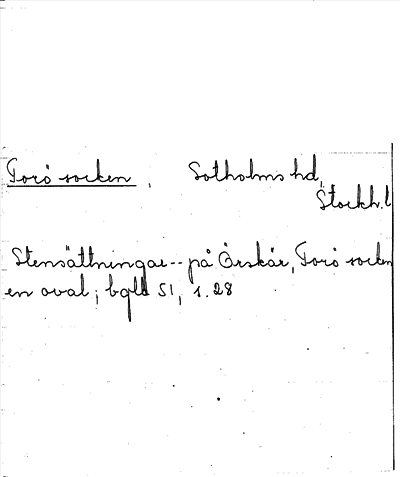 Torö socken, Sotholms hd,
Stockh. l
Stensättningar -- på Örskär, Torö socken
en oval; bqld 51, s. 28